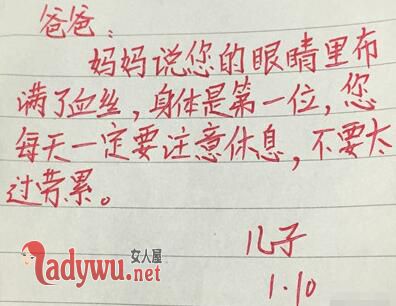 爸爸：
妈妈说您的眼睛里布
满了血丝，身体是第一位，您
每天一定要注意休息，不要太
过劳累。
儿子
1·10
女人屋
ladywu.net